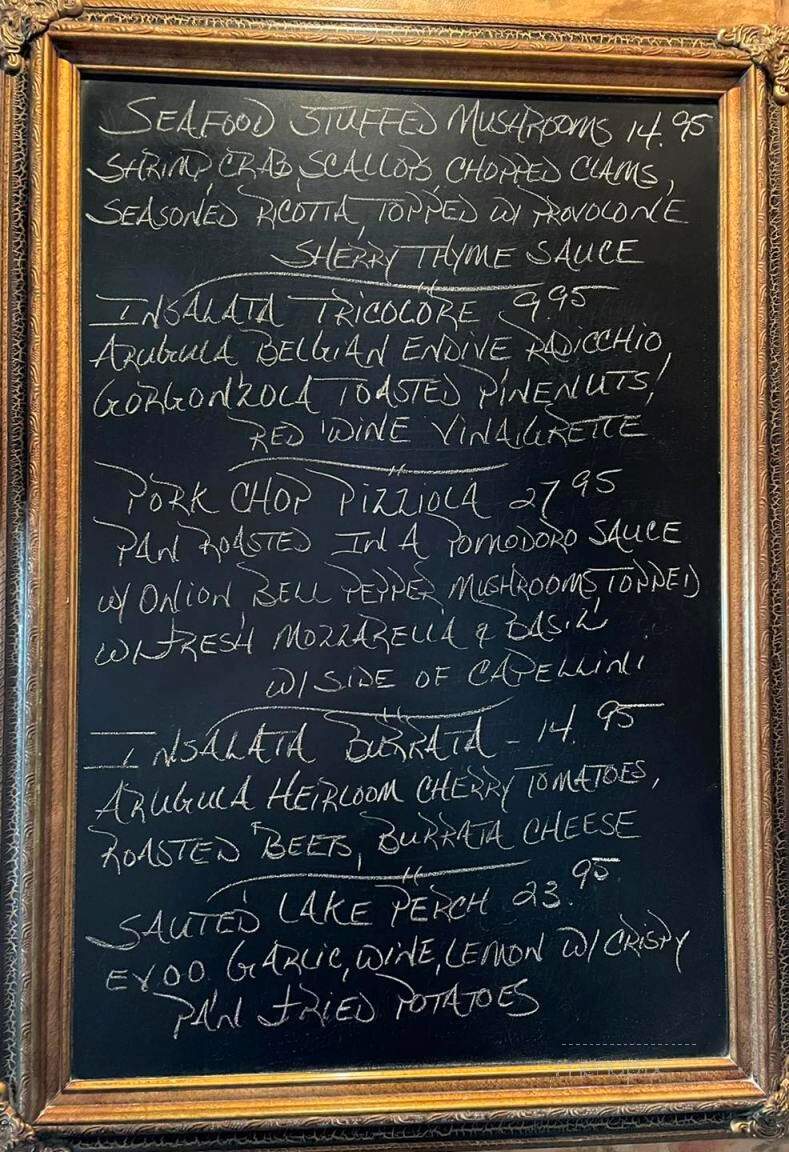 SEAFOOD STUFFED MUSHROOMS 14.95
SHRIMP, CRAB, SCALLOPS, CHOPPED CLAMS,
SEASONED RICOTTA, TOPPED W/ PROVOLONE
SHERRY THYME SAUCE
INSALATA TRICOLORE 9.95
ARUGULA, BELGIAN ENDIVE, RADICCHIO,
GORGONZOLA, TOASTED PINENUTS,
RED WINE VINAIGRETTE
PORK CHOP PIZZIOLA 27.95
PAN ROASTED IN A POMODORO SAUCE
W/ ONION, BELL PEPPER, MUSHROOMS, TOPPED
W/ FRESH MOZZARELLA & BASIL
W/ SIDE OF CAPELLINI
INSALATA BURRATA - 14.95
ARUGULA HEIRLOOM CHERRY TOMATOES,
ROASTED BEETS, BURRATA CHEESE
SAUTED LAKE PERCH 23.95
EVOO. GARLIC, WINE, LEMON W/ CRISPY
PAN FRIED POTATOES